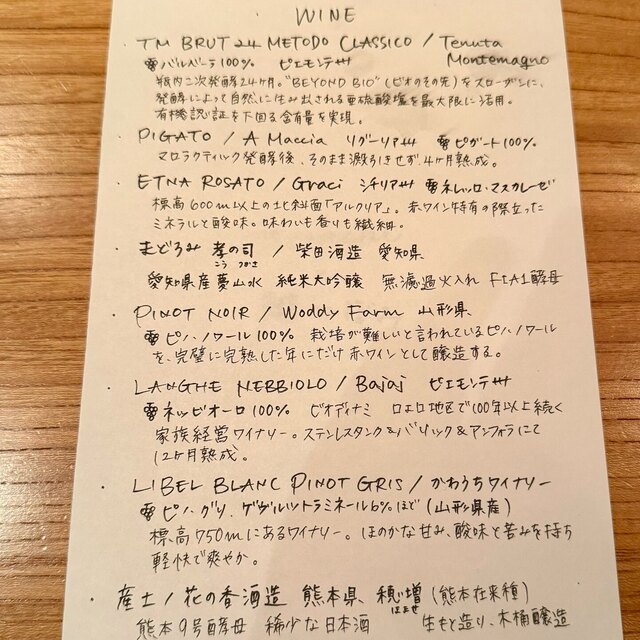 WINE
TM BRUT 24 METODO CLASSICO / Tenuta
Montemagno
バルベーラ100% ピエモンテ州
瓶内二次発酵24ヶ月。"BEYOND BIO"(ビオのその先)をスローガンに、
発酵によって自然に生み出される亜硫酸塩を最大限に活用。
有機認証を下回る含有量を実現。
PIGATO / A Maccia リグーリア州 ピガート100%
マロラクティック発酵後、そのまま澱引きせず4ヶ月熟成。
ETNA ROSATO / Graci シチリア州 ネレッロ・マスカレーゼ
標高600m以上の北斜面「アルクリア」。赤ワイン特有の際立った
ミネラルと酸味。味わいも香りも繊細。
まどろみ 孝の司 / 柴田酒造 愛知県
こう つかさ
愛知県産夢山水 純米大吟醸 無濾過火入れ FIA1酵母
PINOT NOIR / Woddy Farm 山形県
ピノ・ノワール100% 栽培が難しいと言われているピノ・ノワール
を、完璧に完熟した年にだけ赤ワインとして醸造する。
LANGHE NEBBIOLO / Bajaj ピエモンテ州
ネッビオーロ100% ビオディナミ ロエロ地区で100年以上続く
家族経営ワイナリー。ステンレスタンク&バリック&アンフォラにて
12ヶ月熟成。
LIBEL BLANC PINOT GRIS / かわうちワイナリー
ピノ・グリ、ゲヴュルツトラミネール6%ほど(山形県産)
標高750mにあるワイナリー。ほのかな甘み、酸味と苦みを持ち
軽快で爽やか。
産土 / 花の香酒造 熊本県 穂増(熊本在来種)
ほませ
熊本9号酵母 稀少な日本酒 生もと造り、木桶醸造